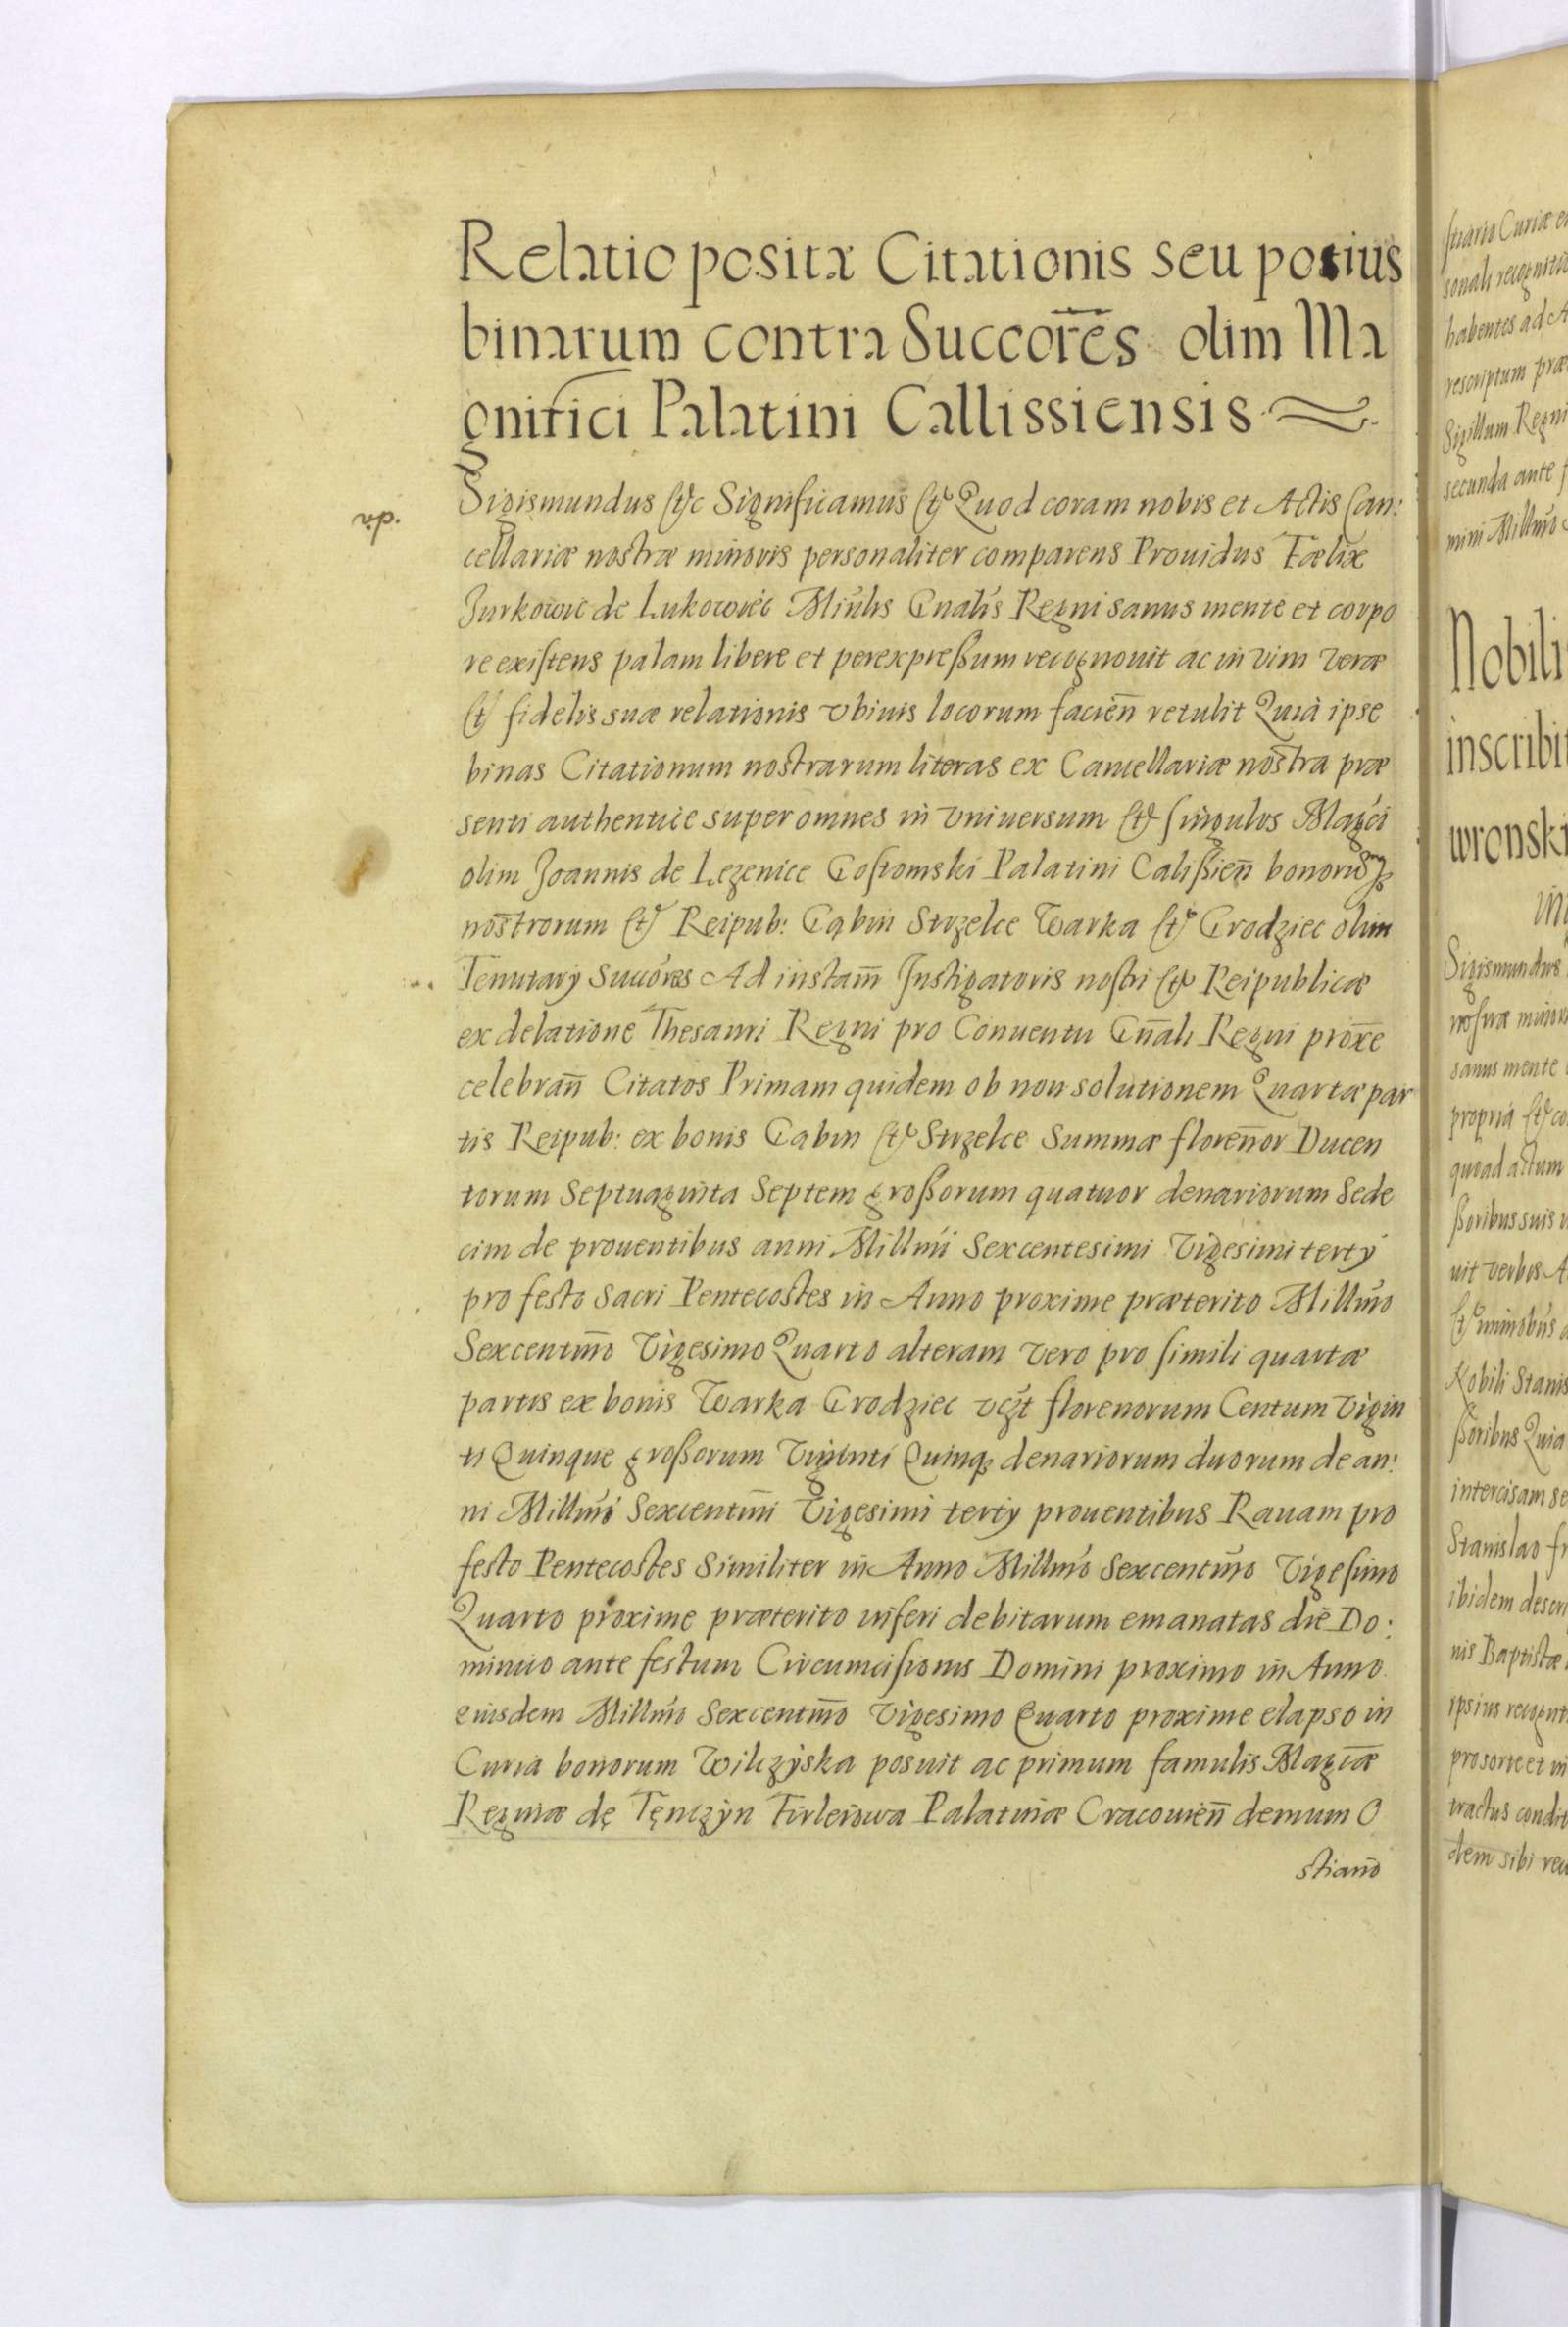 Relatio positæ Citationis seu potius
binarum contra Succores̄ olim Ma
gnifici Palatini Callissiensis
Sigismundus etc Significamus et Quod coram nobis et Actis Can:
cellariæ nostræ minoris personaliter comparens Prouidus Fælix
Jurkowic de Lukowiec Minlis Gnalis Regni sanus mente et corpo
re existens palam libere et per expressum recognouit ac in vim veræ
et fidelis suæ relationis vbiuis locorum facien̄ retulit Quia ipse
binas Citationum nostrarum literas ex Cancellariæ nostra præ
senti authentice super omnes in vniuersum et singulos Magci
olim Joannis de Lezenice Gostomski Palatini Calissien̄ bonorum
nostrorum et Reipub: Gąbin Strzelce Warka et Grodziec olim
Tenutarij Succores Ad instam̄ Instigatoris nostri et Reipublicæ
ex delatione Thesauri Regni pro Conuentu Gn̄ali Regni proxe
celebran̄ Citatos Primam quidem ob non solutionem Quartæ par
tis Reipub: ex bonis Gąbin et Strzelce Summæ floren̄or Ducen
torum Septuaginta Septem grossorum quatuor denariorum Sede
cim de prouentibus anni Millmi Sexcentesimi Vigesimi tertij
pro festo Sacri Pentecostes in Anno proxime præterito Millmo
Sexcentmo Vigesimo Quarto alteram vero pro simili quartæ
partis ex bonis Warka Grodziec vczt florenorum Centum Vigin
ti Quinque grossorum Viginti Quinq denariorum duorum de an:
ni Millmi Sexcentmi Vigesimi tertij prouentibus Rauam pro
festo Pentecostes Similiter in Anno Millmo Sexcentmo Vigesimo
Quarto proxime præterito inferi debitarum emanatas die Do:
minico ante festum Circumcisionis Domini proximo in Anno
eiusdem Millmo Sexcentmo Vigesimo Quarto proxime elapso in
Curia bonorum Wilczyska posuit ac primum famulis Magcæ
Reginæ de Tęnczyn Firleiowa Palatinæ Cracouien̄ demum O
stiario